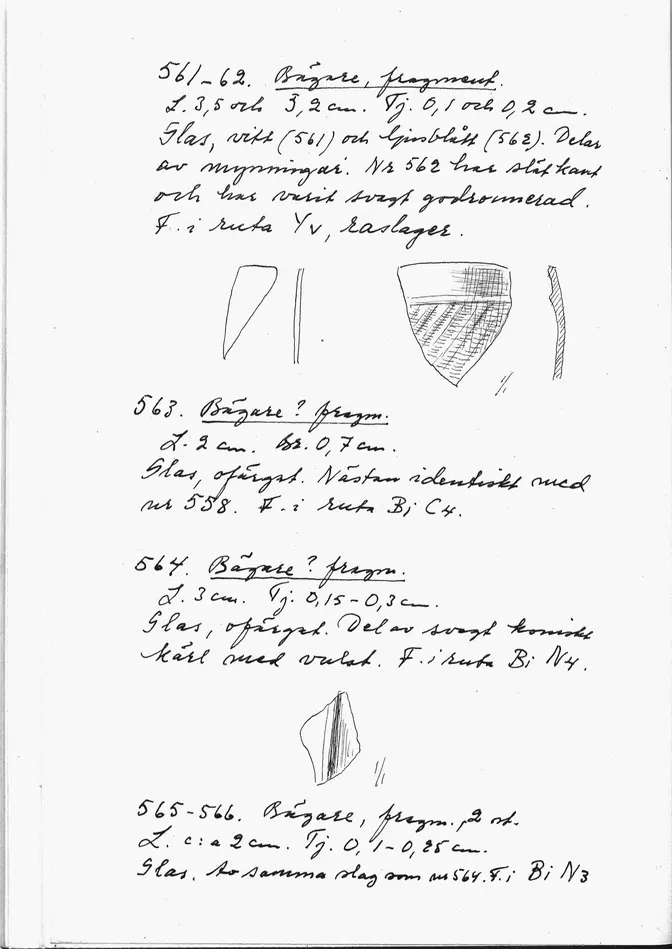 561-62. Bägare, fragment.
L. 3,5 och 3,2 cm. Tj. 0,1 och 0,2 cm.
Glas, vitt (561) och ljusblått (562). Delar
av mynningar. Nr 562 har slät kant
och har varit svagt godronnerad.
F. i ruta Yv, raslager.
1/1
563. Bägare? fragm.
L. 2 cm. Br. 0,7 cm.
Glas, ofärgat. Nästan identiskt med
nr 558. F. i ruta Bi C4.
564. Bägare? fragm.
L. 3 cm. Tj. 0,15-0,3 cm.
Glas, ofärgat. Del av svagt koniskt
kärl med vulst. F. i ruta Bi N4.
1/1
565-566. Bägare, fragm., 2 st.
L. c:a 2 cm. Tj. 0,1-0,25 cm.
Glas. Av samma slag som nr 564. F. i Bi N3